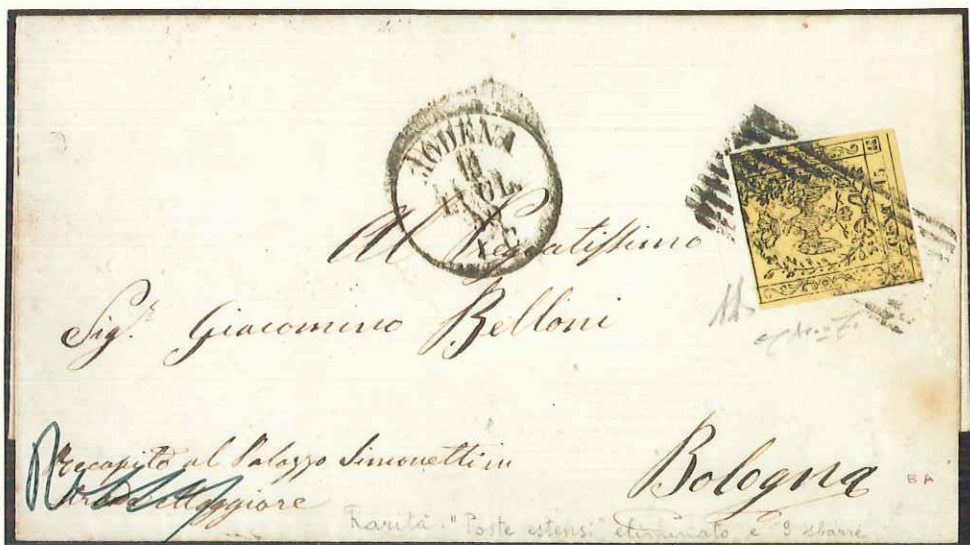 MODENA
LUGL.
CENT. 15.
Al Pregiatissimo
Sig.r Giacomino Belloni
Recapito al Palazzo Simonetti in
Strada Maggiore
Bologna
BA
Rarità "Poste estensi" e 9 sbarre